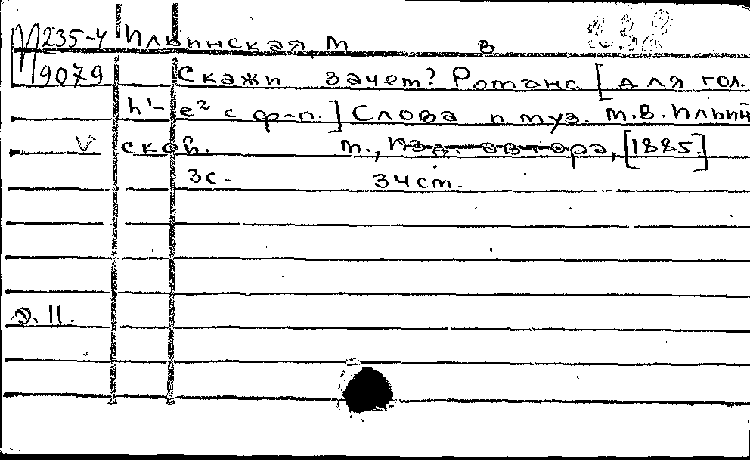 М 235-4 Ильинская, М В
9079 Скажи зачем? Романс [для гол.
h¹-e² с ф-п.] Слова и муз. М.В. Ильин
V ской. М., Изд. автора, [1885]
3с. 34см.
Э. II.